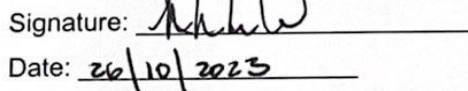 Signature:
Date: 26/10/2023